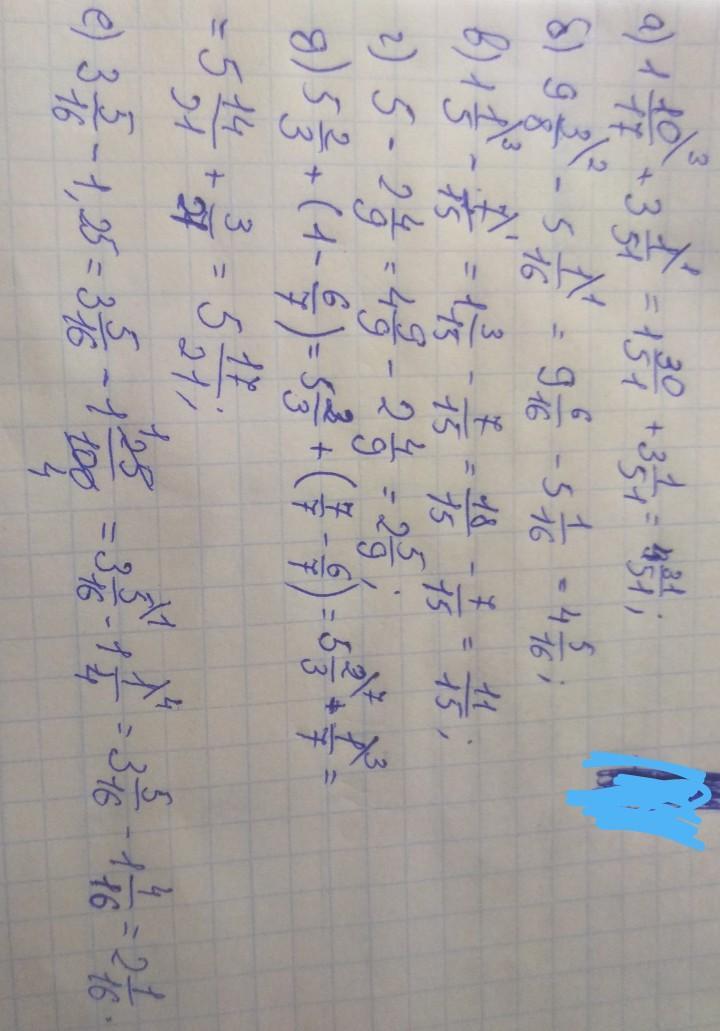 а) 1 10/17 \3 + 3 1/51 \1 = 1 30/51 + 3 1/51 = 4 31/51;
б) 9 3/8 \2 - 5 1/16 \1 = 9 6/16 - 5 1/16 = 4 5/16;
в) 1 1/5 \3 - 7/15 \1 = 1 3/15 - 7/15 = 18/15 - 7/15 = 11/15;
г) 5 - 2 4/9 = 4 9/9 - 2 4/9 = 2 5/9;
д) 5 2/3 + (1 - 6/7) = 5 2/3 + (7/7 - 6/7) = 5 2/3 \7 + 1/7 \3 =
= 5 14/21 + 3/21 = 5 17/21;
е) 3 5/16 - 1,25 = 3 5/16 - 1 25/100 1 4 = 3 5/16 \1 - 1 1/4 \4 = 3 5/16 - 1 4/16 = 2 1/16.